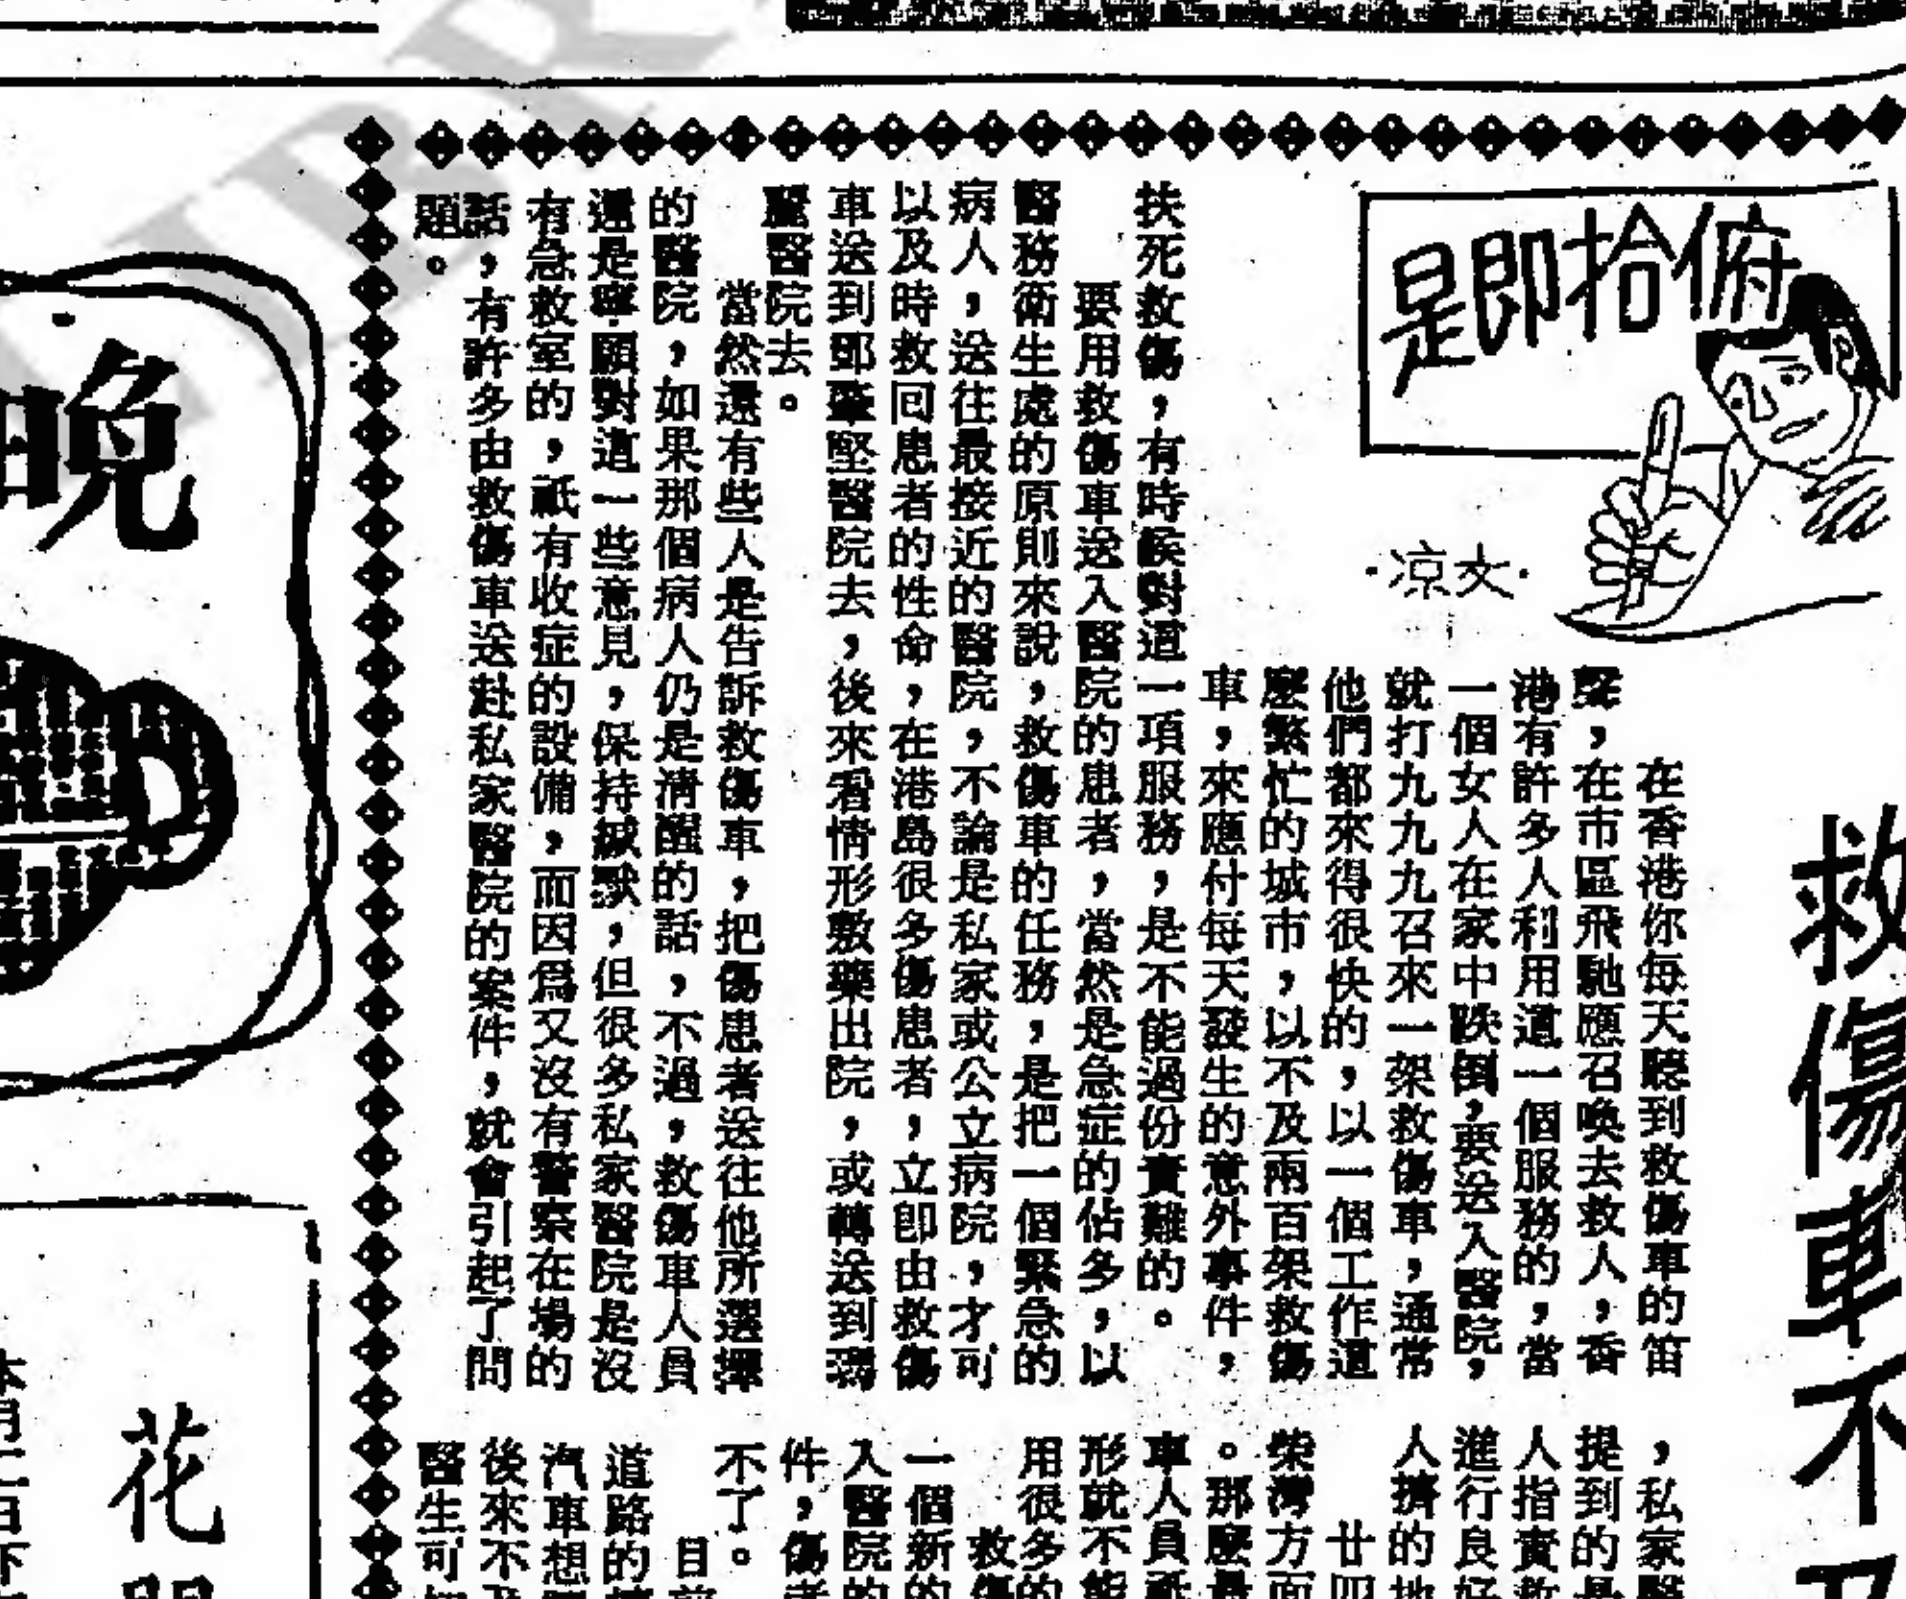 俯拾即是
·文凉·
救傷車不
在香港你每天聽到救傷車的笛
聲，在市區飛馳應召喚去救人，香
港有許多人利用這一個服務的，當
一個女人在家中跌倒，要送入醫院，
就打九九九召來一架救傷車，通常
他們都來得很快的，以一個工作這
麼繁忙的城市，以不及兩百架救傷
車，來應付每天發生的意外事件，
扶死救傷，有時候對這一項服務，是不能過份責難的。
要用救傷車送入醫院的患者，當然是急症的佔多，以
醫務衛生處的原則來說，救傷車的任務，是把一個緊急的
病人，送往最接近的醫院，不論是私家或公立病院，才可
以及時救回患者的性命，在港島很多傷患者，立即由救傷
車送到鄧肇堅醫院去，後來看情形敷藥出院，或轉送到瑪
麗醫院去。
當然還有些人是告訴救傷車，把傷患者送往他所選擇
的醫院，如果那個病人仍是清醒的話，不過，救傷車人員
還是寧願對這一些意見，保持緘默，但很多私家醫院是沒
有急救室的，祇有收症的設備，而因為又沒有警察在場的
話，有許多由救傷車送赴私家醫院的案件，就會引起了問
題。
，私家醫
提到的是
人指責救
進行良好
人擠的地
廿四
荃灣方面
。那麼最
車人員祇
形就不能
用很多的
救傷
一個新的
入醫院的
件，傷者
不了。
目前
道路的
汽車想
後來不
醫生可
晚
花
本月二日下